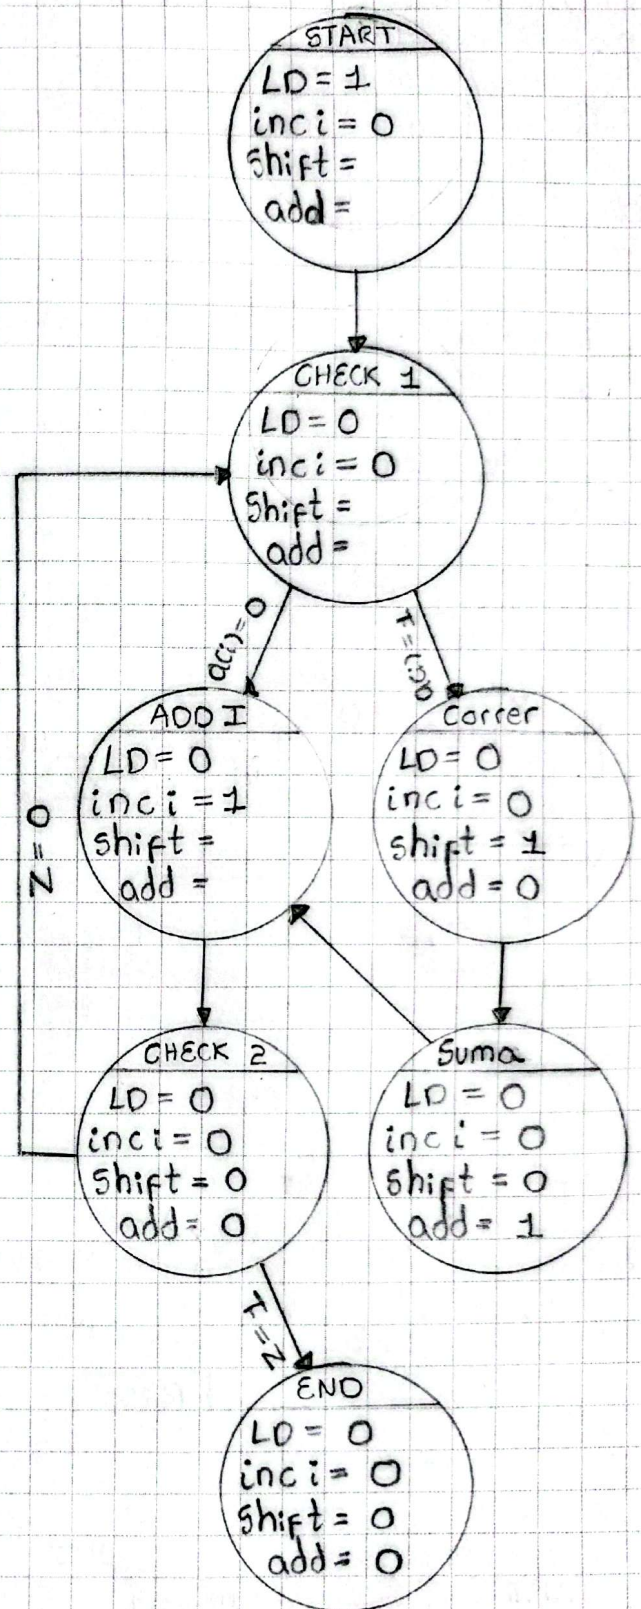 START
LD = 1
inc i = 0
Shift =
add =
CHECK 1
LD = 0
inc i = 0
Shift =
add =
a(i) = 0
a(i) = 1
ADD I
LD = 0
inc i = 1
shift =
add =
Correr
LD = 0
inc i = 0
shift = 1
add = 0
Z = 0
CHECK 2
LD = 0
inc i = 0
Shift = 0
add = 0
Suma
LD = 0
inc i = 0
Shift = 0
add = 1
Z = 1
END
LD = 0
inc i = 0
Shift = 0
add = 0